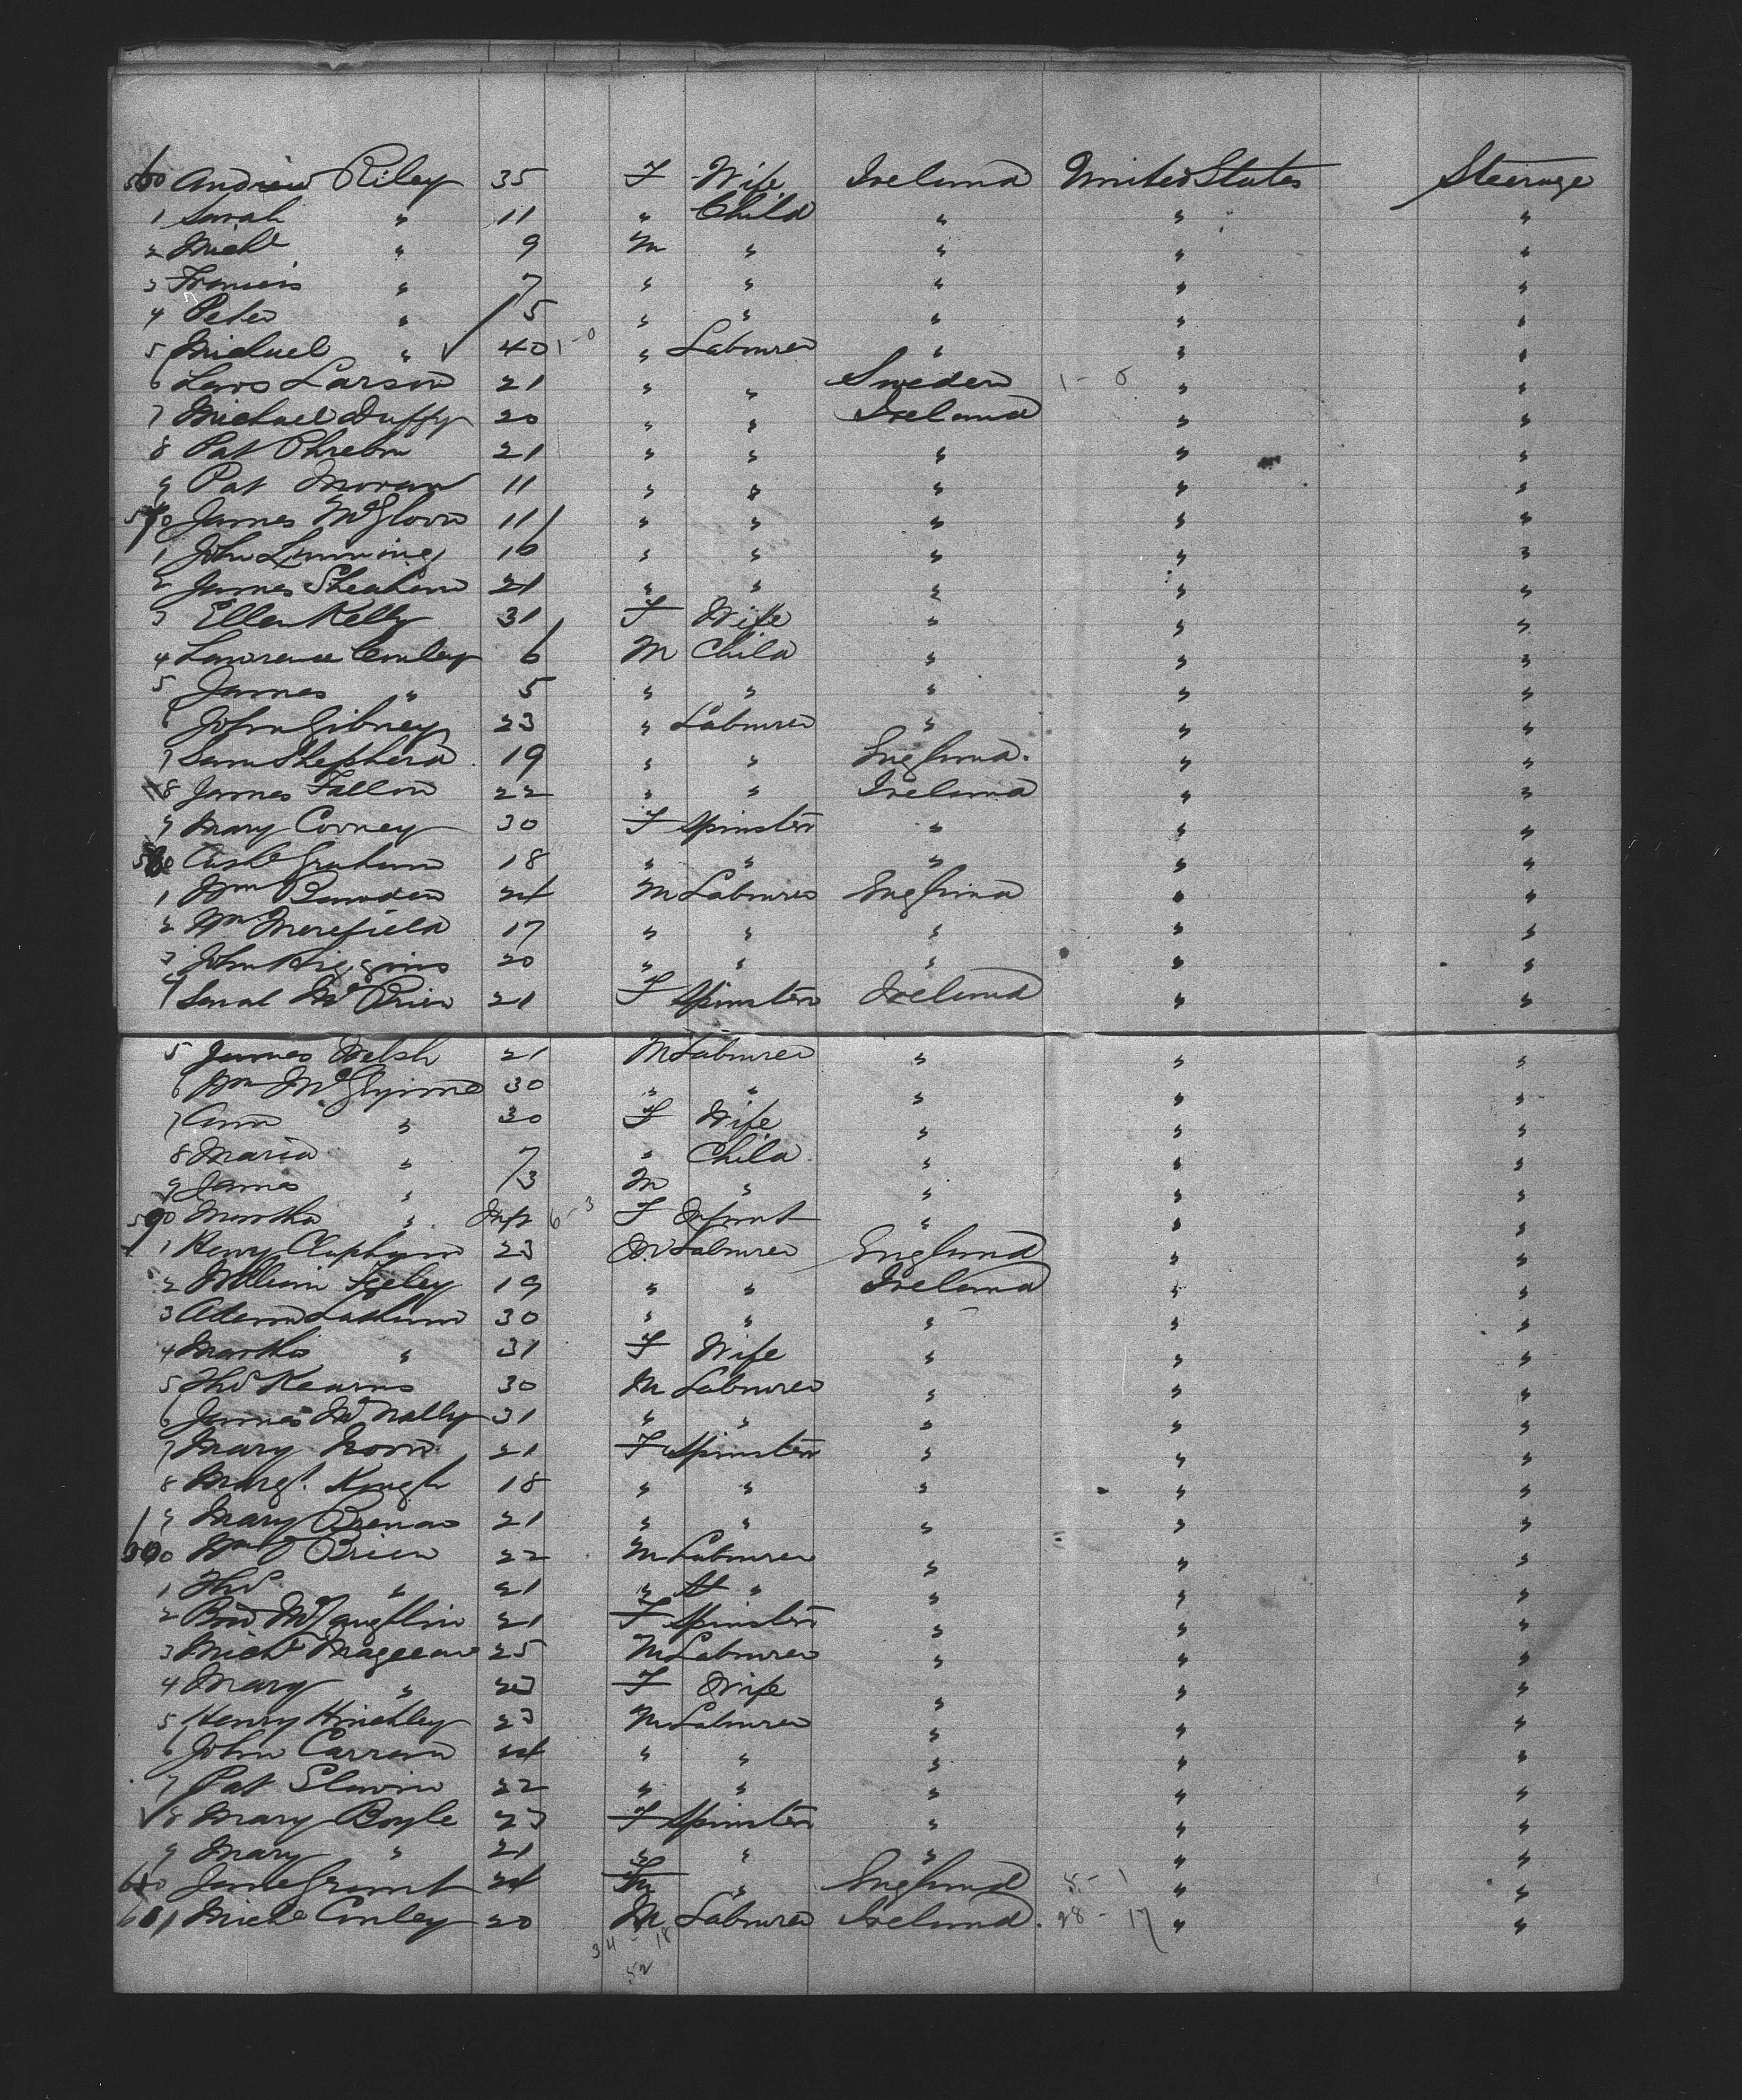 560 Andrew Riley 35 F Wife Ireland United States Steerage
1 Sarah " 11 " Child " " "
2 Michl " 9 M " " " "
3 Francis " 7 " " " " "
4 Peter " 5 " " " " "
5 Michael " 40 1-0 " Labourer " " "
6 Lars Larson 21 " " Sweden 1-0 " "
7 Michael Duffy 20 " " Ireland " "
8 Pat 21 " " " " "
9 Pat Moran 11 " " " " "
570 James McGlovn 11 " " " " "
1 John 16 " " " " "
2 James Sheahan 21 " " " " "
3 Ellen Kelly 31 F Wife " " "
4 Lawrence Conley 6 M Child " " "
5 James " 5 " " " " "
6 John Gibney 23 " Labourer " " "
7 Sam Shepherd 19 " " England. " "
8 James Fallon 22 " " Ireland " "
9 Mary Cooney 30 F Spinster " " "
580 Cathe Graham 18 " " " " "
1 Wm Bowden 24 M Labourer England " "
2 Wm Merefield 17 " " " " "
3 John Higgins 20 " " " " "
4 Sarah McBrien 21 F Spinster Ireland " "
5 James Welsh 21 M Labourer " " "
6 Wm McGlynne 30 " " " " "
7 Ann " 30 F Wife " " "
8 Maria " 7 " Child " " "
9 James " 3 M " " " "
590 Martha " Inft 6-3 F Infant " " "
1 Henry Clapham 23 M Labourer England " "
2 William Feeley 19 " " Ireland " "
3 Adam Latham 30 " " " " "
4 Martha " 31 F Wife " " "
5 Thos Kearns 30 M Labourer " " "
6 James McNally 31 " " " " "
7 Mary 21 F Spinster " " "
8 Margt. Keugh 18 " " " " "
9 Mary Brenan 21 " " " " "
600 Wm O'Brien 22 M Labourer " " "
1 Thos " 21 " " " " "
2 Brid McLaughlin 21 F Spinster " " "
3 Michl Mageean 25 M Labourer " " "
4 Mary " 23 F Wife " " "
5 Henry Hinchley 23 M Labourer " " "
6 John Carran 24 " " " " "
7 Pat Slavin 22 " " " " "
8 Mary Boyle 23 F Spinster " " "
9 Mary " 21 " " " " "
610 Jane Grant 24 " " England 5-1 " "
611 Michl Conley 20 M Labourer Ireland. 28-17 " "
34-18
52